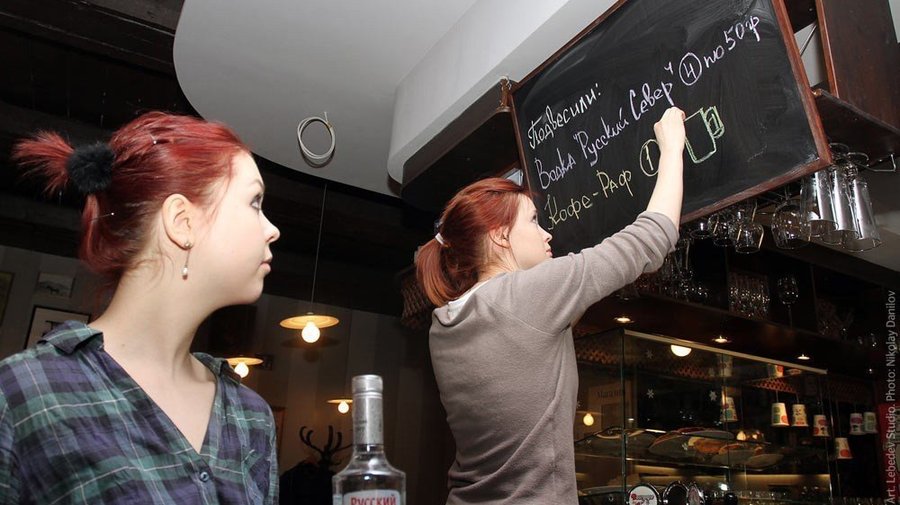 Подвесили:
Водка Русский Север ④ по 50г
Кофе-Раф ①
РУССКИЙ
Art. Lebedev Studio. Photo: Nikolay Danilov